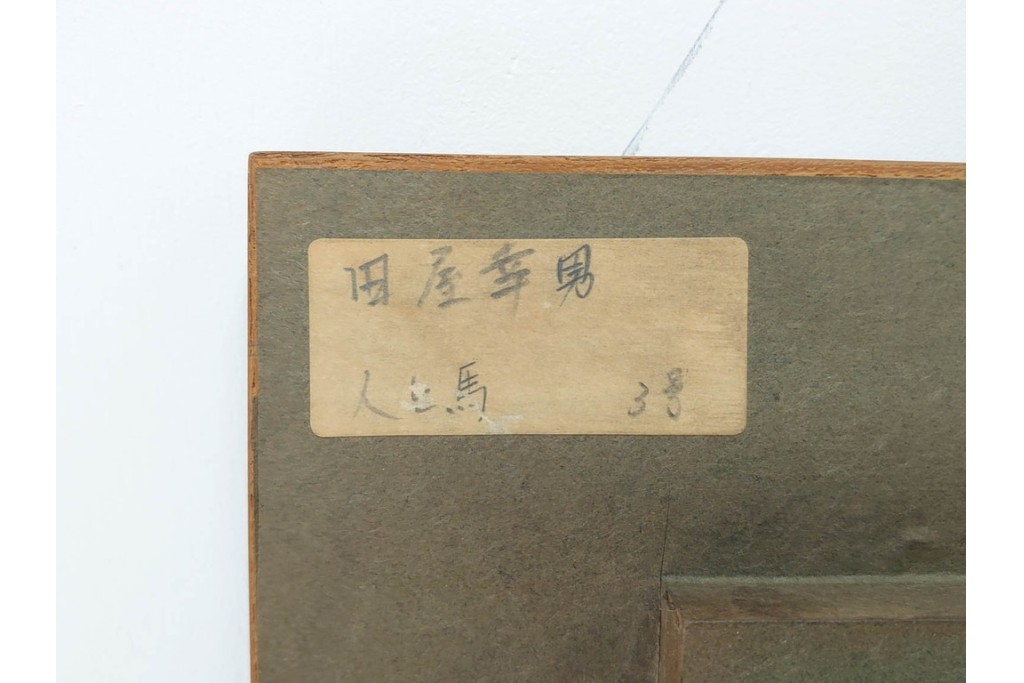 田屋幸男
人と馬 3号